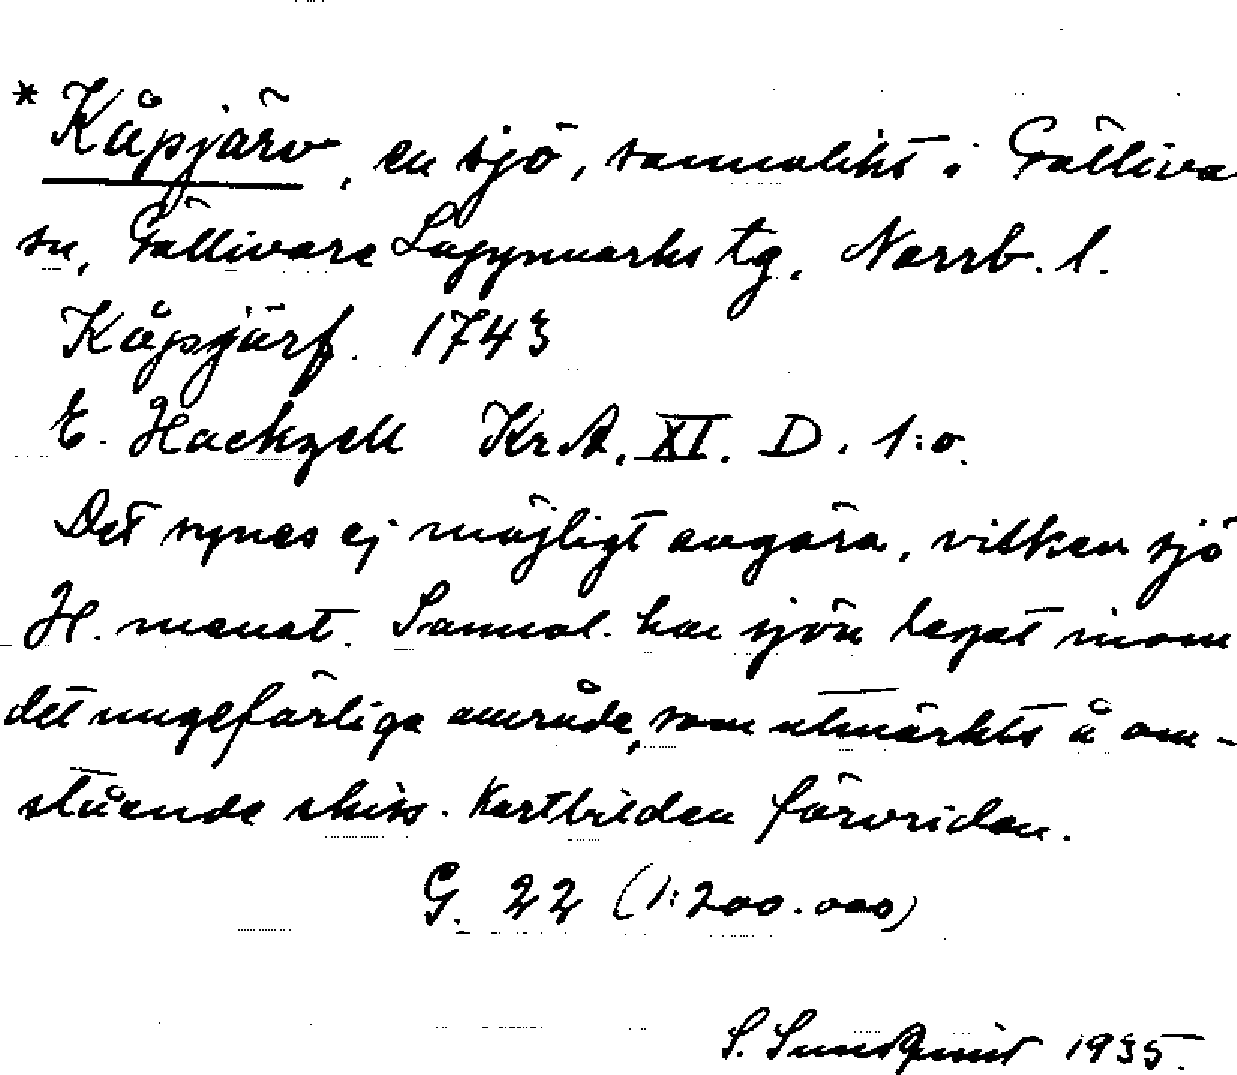 * Kåpjärv, en sjö, sannolikt i Gälliva
sn, Gällivare Lappmarks tg. Norrb. l.
Kåpjärf. 1743
E. Hackzell Kr.A. XI. D. 1:o.
Det synes ej möjligt avgöra, vilken sjö
H. menat. Sannol. har sjön legat inom
det ungefärliga område, som utmärkts å om-
stående skiss. Kartbilden förvriden.
G. 22 (1:200.000)
S. Sundqvist 1935.